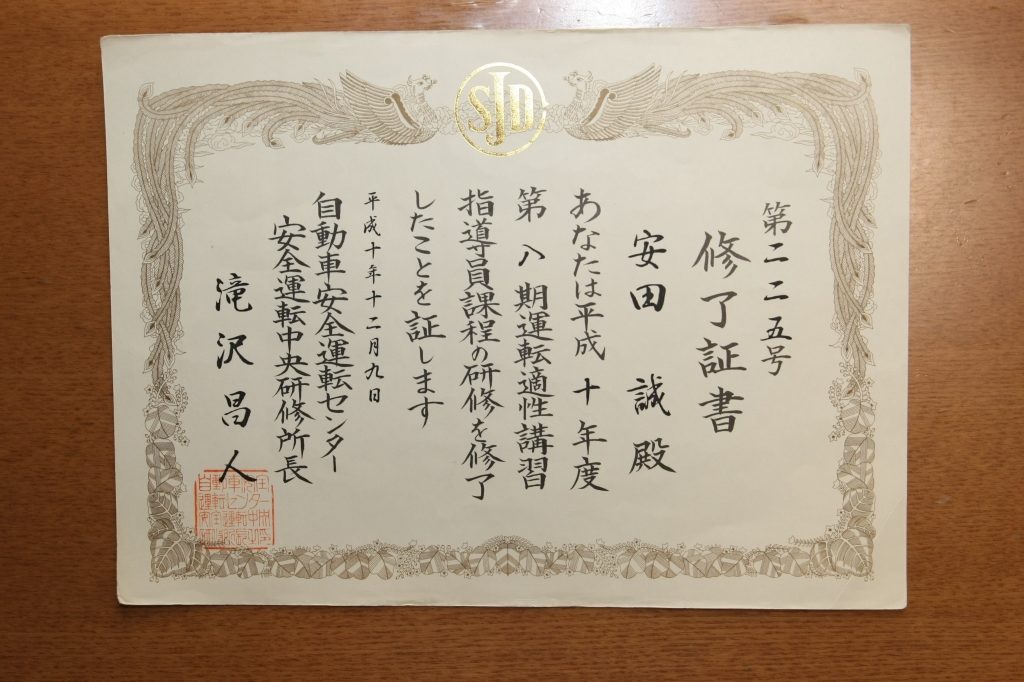 SJD
第二二五号
修了証書
安田誠殿
あなたは平成十年度
第八期運転適性講習
指導員課程の研修を修了
したことを証します
平成十年十二月九日
自動車安全運転センター
安全運転中央研修所長
滝沢昌人